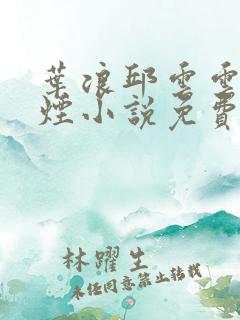 葉浪邱雲雲
煙小說免費
林躍生
未經同意禁止轉載